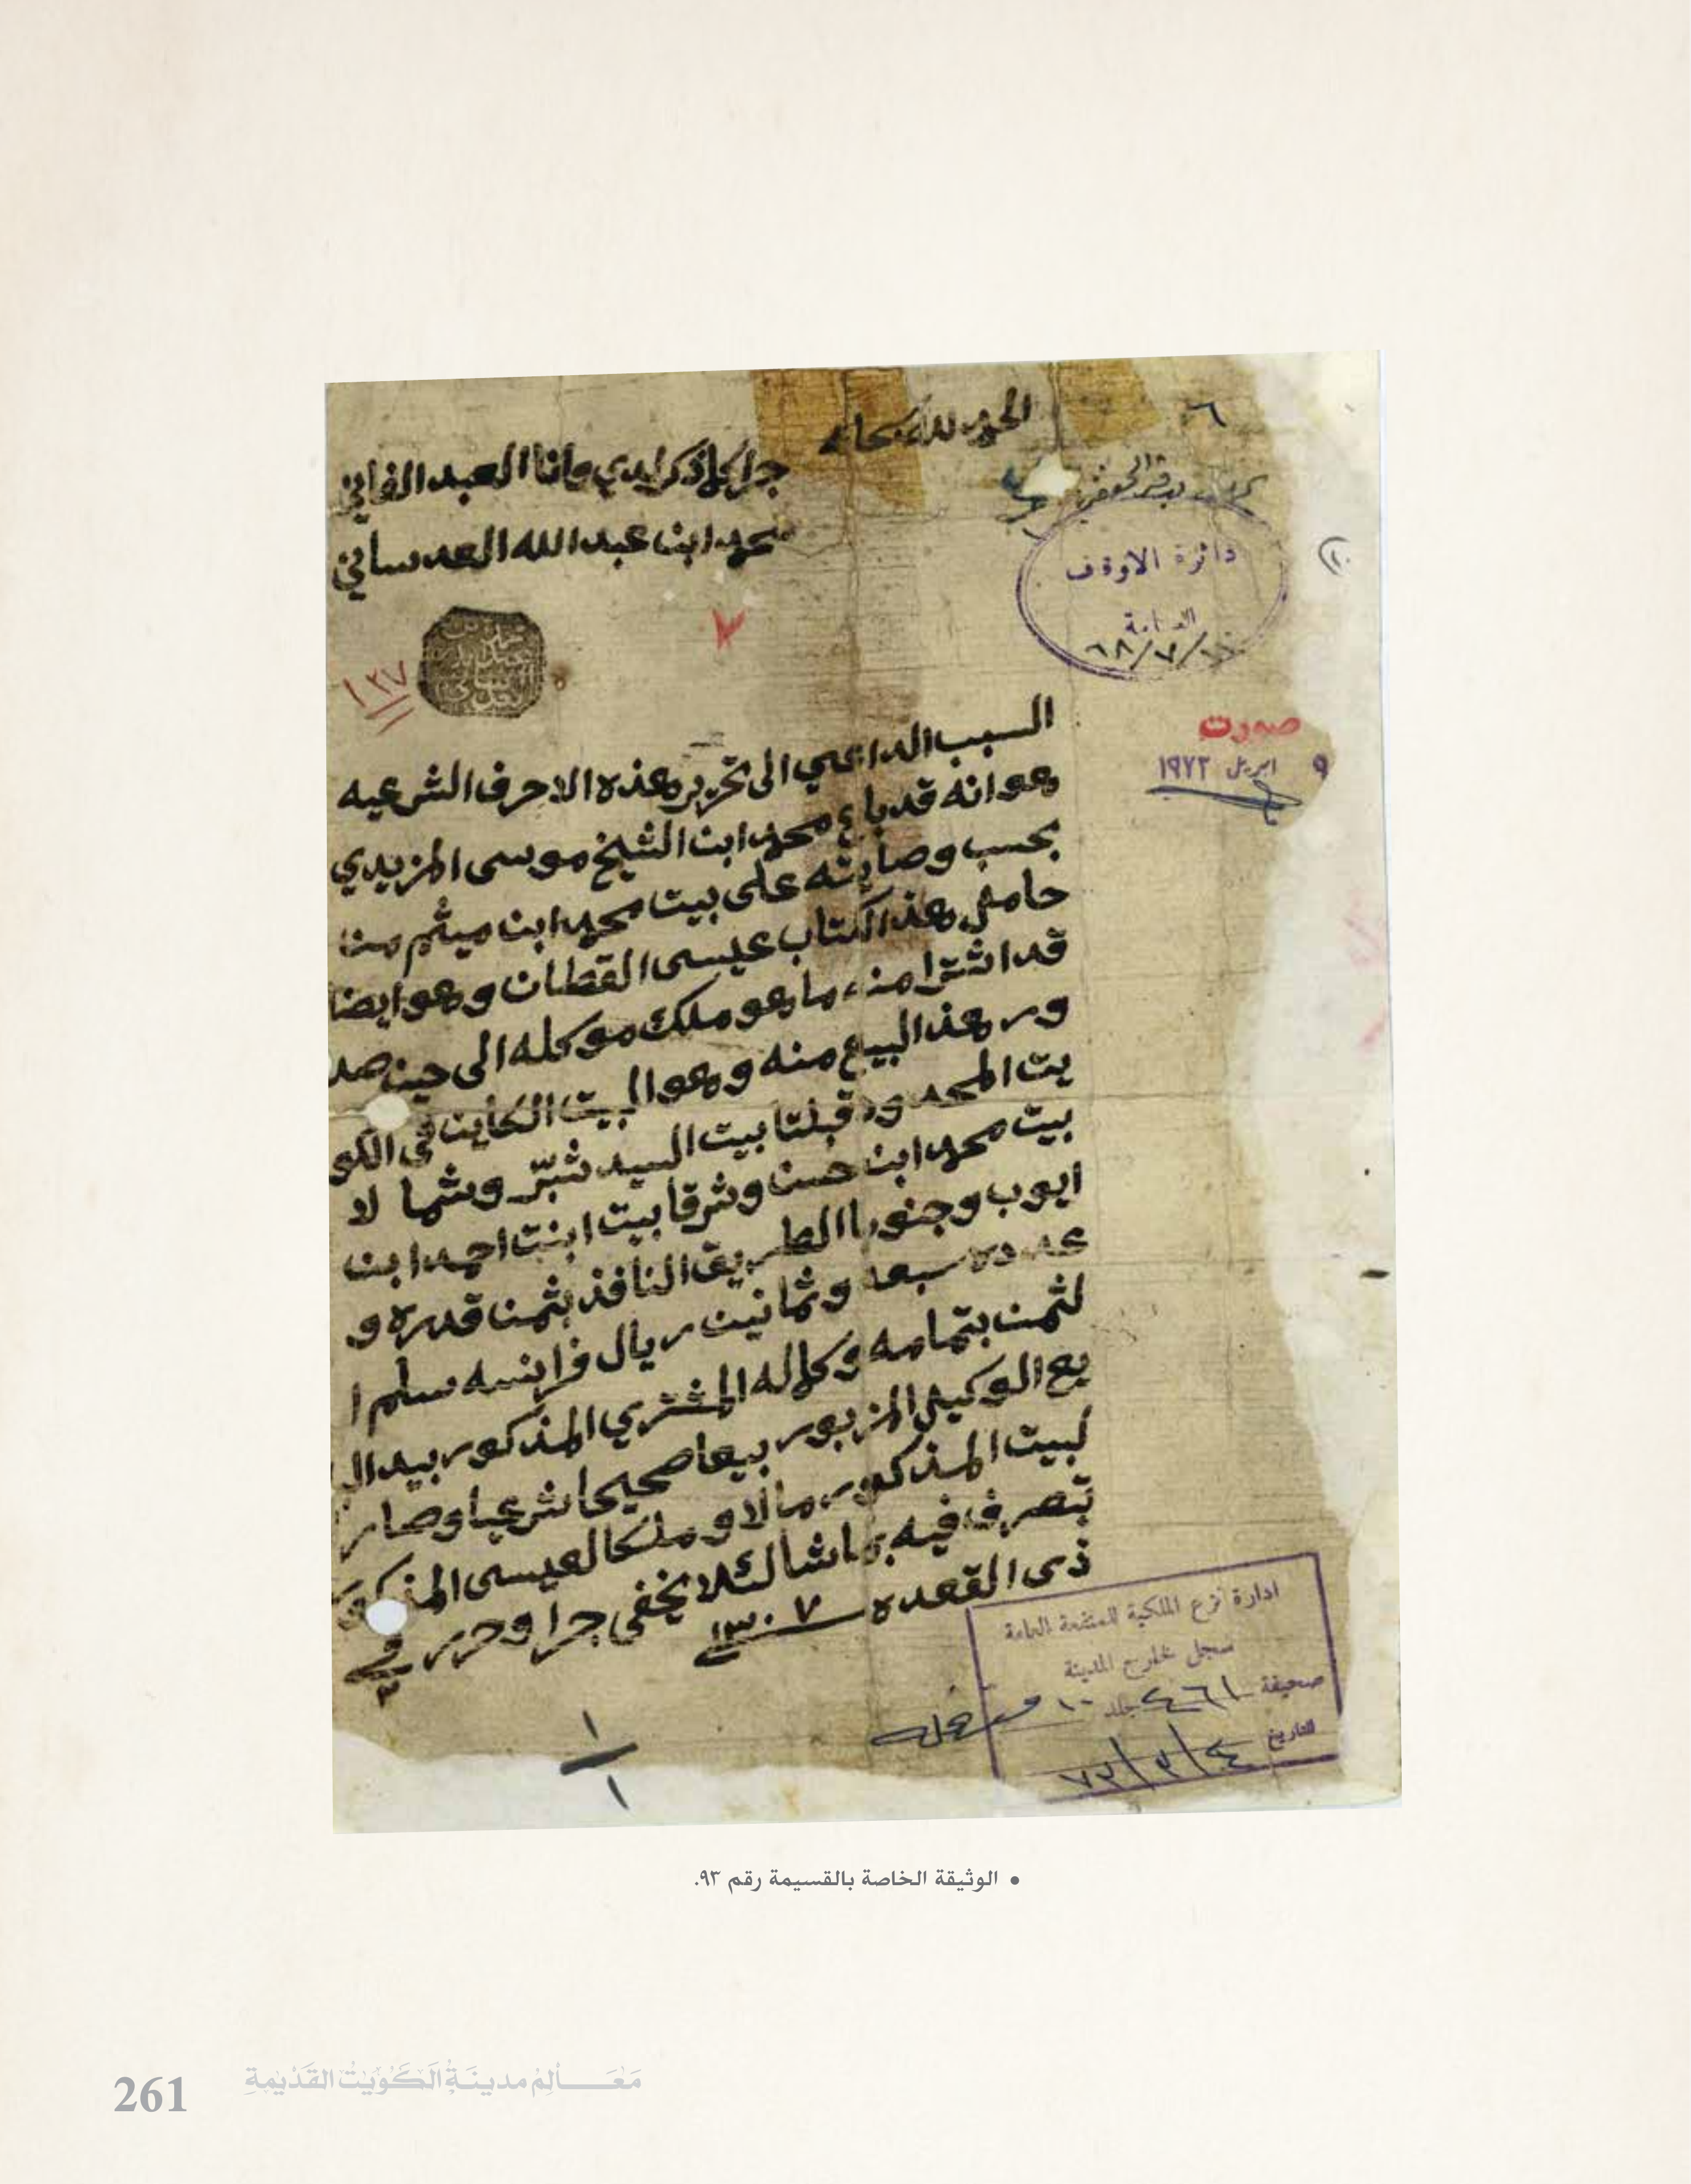 الحمد لله سبحانه
جرا كلما ذكر لدي وانا العبد الفاني
محمد ابن عبدالله العدساني
دائرة الاوقاف
العامة
٦٨/٧/
١٣٧
صورت
٩ ابريل ١٩٧٢
السبب الداعي الى تحرير هذه الاحرف الشرعيه
هو انه قد باع محمد ابن الشيخ موسى المزيدي
بحسب وصايته على بيت محمد ابن ميثم من
حامل هذ الكتاب عيسى القطان وهو ايضا
قد اشترا منه ما هو ملك موكله الى حين صد
ور هذ البيع منه وهو البيت الكاين في الكو
يت المحدود قبلتا بيت السيد شبّر وشما لا
بيت محمد ابن حسن وشرقا بيت ابنت احمد ابن
ايوب وجنوبا الطريق النافذ بثمن قدره و
عدده سبعه وثمانين ريال فرانسه سلم ا
لثمن بتمامه وكماله المشتري المذكور بيد الب
يع الوكيل المزبور بيعا صحيحا شرعيا وصار
لبيت المذكور مالا و ملكا لعيسى المذكور
تصرف فيه بما شا لئلا يخفى جرا وحرر في
ذى القعده سنة ١٣٠٧
ادارة نزع الملكية للمنفعة العامة
سجل خارج المدينة
صحيفة ٤٦١ جلد ١٠
التاريخ ٧٣/٣/٤
١
١
• الوثيقة الخاصة بالقسيمة رقم ٩٣.
مَعَالِمْ مدينَةُ الكُوَيْتُ القَدْيمةِ
261